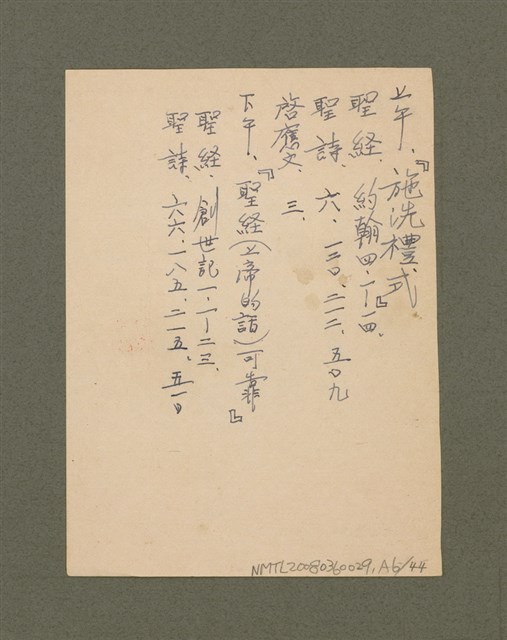 上午、『施洗禮式』
聖経、約翰四.1-一四.
聖詩、六、一二〇、二一二、五〇九
啓應文、三、
下午、『聖経(上帝的話)可靠』
聖経、創世記一、1-二三、
聖詩、六六、一八五、二一五、五一〇
NMTL20080360029, A6/44